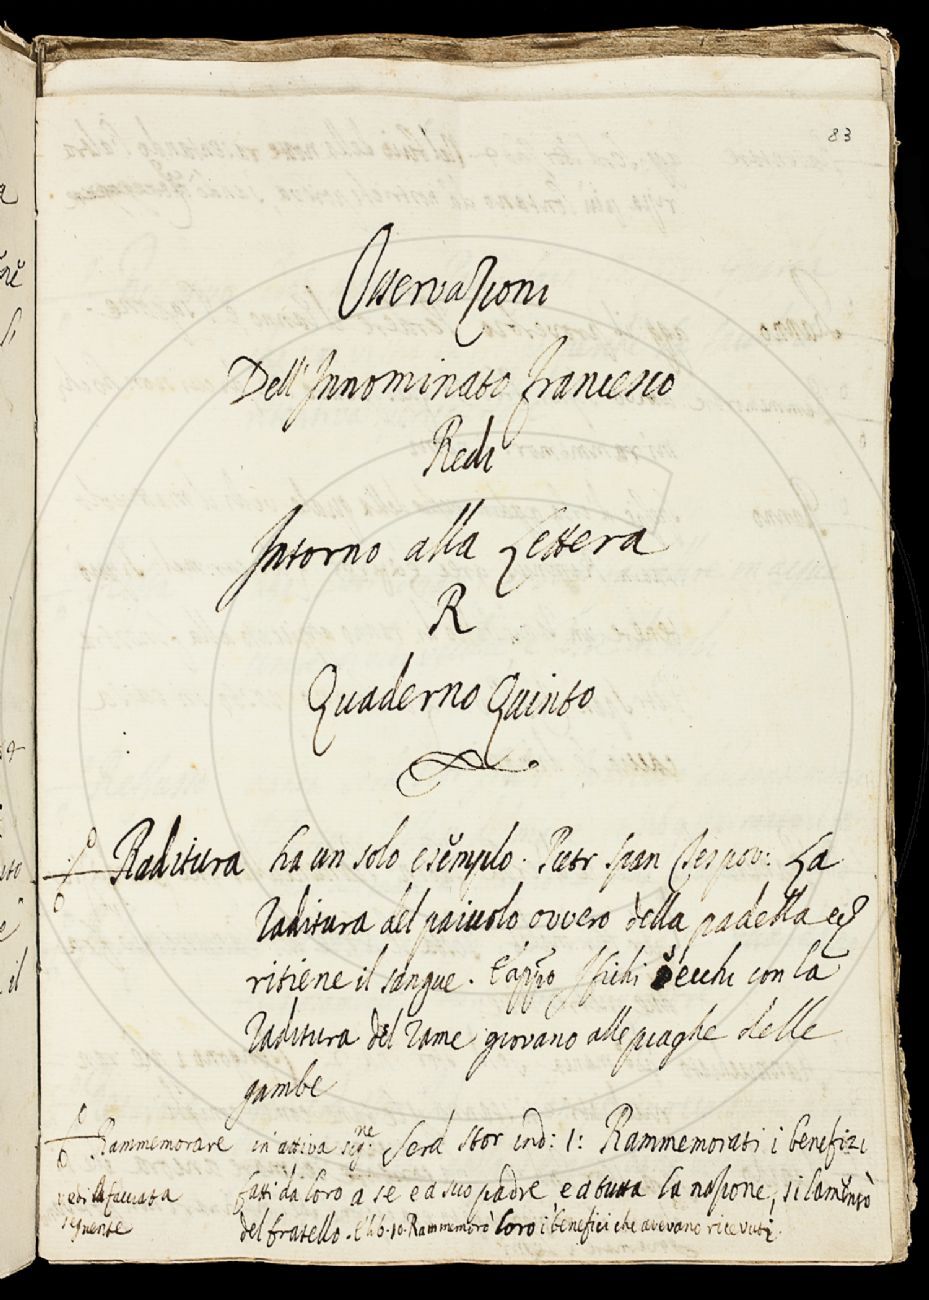 83
Osservazioni
Dell'Innominato Francesco
Redi
Intorno alla Lettera
R
Quaderno Quinto
Raditura ha un solo esĕmplo. Pietr Span La
Raditura del paiuolo ovvero della padella
ritiene il sangue. E appō I fichi secchi con la
Raditura del Rame giovano alle piaghe delle
gambe
Rammemorare in attiva signe. Serd Stor ind: 1: Rammemorati i benefizi
vedi la facciata fatti da loro a se e a suo padre e a tutta la nazione, si lamĕntò
seguente del fratello. E lib. 10. Rammemorò loro i benefici che avevano ricevuti